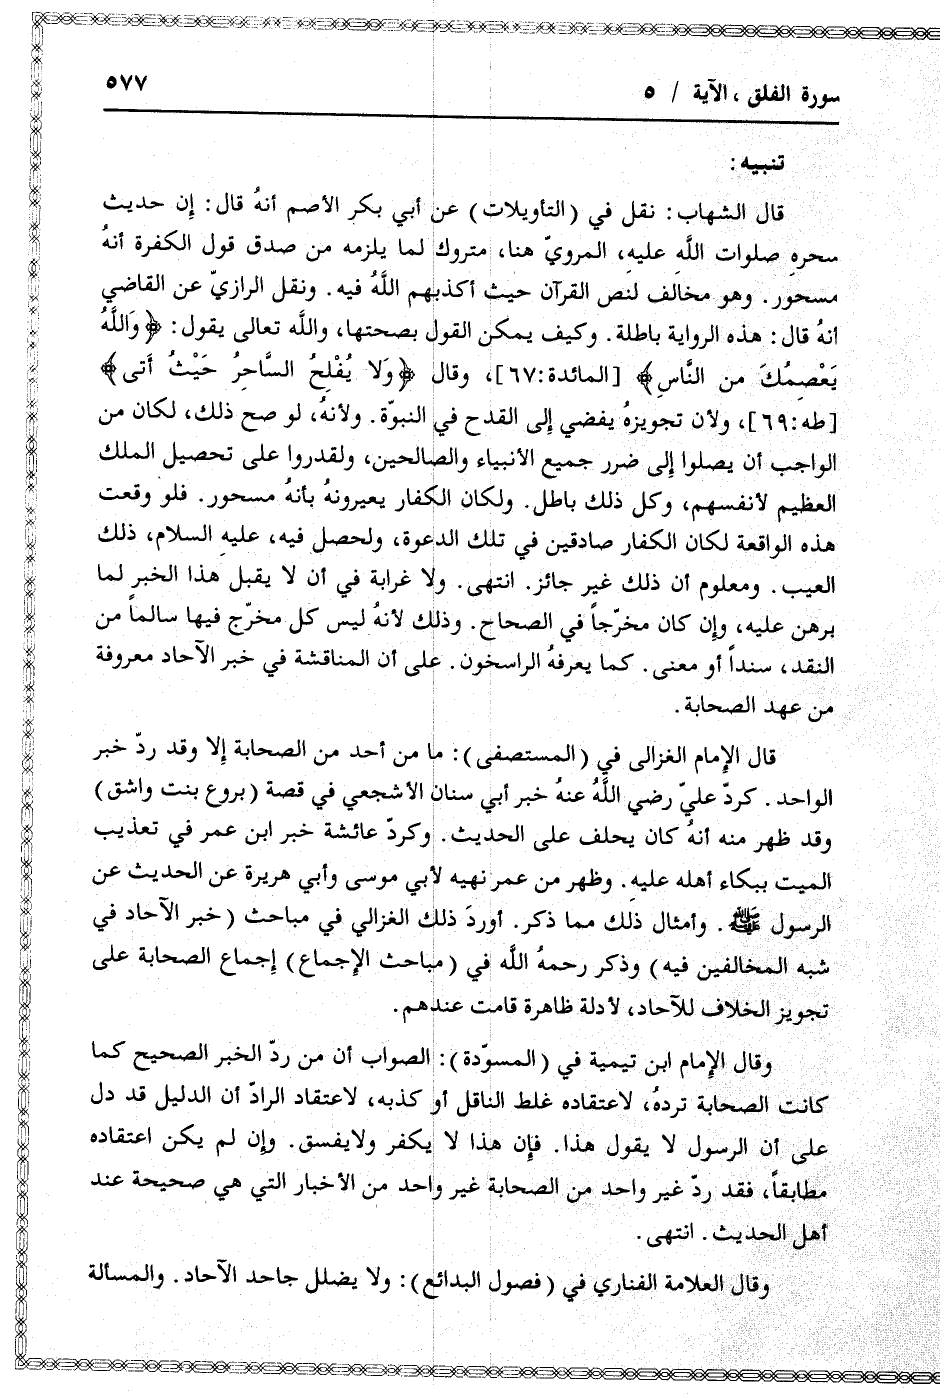 سورة الفلق ، الآية / ٥
٥٧٧
تنبيه :
قال الشهاب : نقل في (التأويلات) عن أبي بكر الأصم أنهُ قال : إن حديث
سحرهِ صلوات اللَّهِ عليهِ، المرويّ هنا، متروك لما يلزمه من صدق قول الكفرة أنهُ
مسحور . وهو مخالف لنص القرآن حيث أكذبهم اللَّهُ فيه . ونقل الرازيّ عن القاضي
انهُ قال : هذه الرواية باطلة . وكيف يمكن القول بصحتها، واللَّه تعالى يقول : ﴿وَاللَّهُ
يَعْصِمُكَ من النَّاسِ﴾ [المائدة:٦٧]، وقال ﴿وَلا يُفْلِحُ السَّاحِرُ حَيْثُ أَتى﴾
[طه:٦٩]، ولأن تجويزهُ يفضي إلى القدح في النبوّة . ولأنهُ، لو صح ذلك، لكان من
الواجب أن يصلوا إلى ضرر جميع الأنبياء والصالحين، ولقدروا على تحصيل الملك
العظيم لأنفسهم، وكل ذلك باطل . ولكان الكفار يعيرونهُ بأنهُ مسحور . فلو وقعت
هذه الواقعة لكان الكفار صادقين في تلك الدعوة، ولحصل فيه، عليهِ السلام، ذلك
العيب . ومعلوم أن ذلك غير جائز . انتهى . ولا غرابة في أن لا يقبل هذا الخبر لما
برهن عليه، وإن كان مخرّجاً في الصحاح . وذلك لأنهُ ليس كل مخرّج فيها سالماً من
النقد، سنداً أو معنى . كما يعرفهُ الراسخون . على أن المناقشة في خبر الآحاد معروفة
من عهد الصحابة .
قال الإمام الغزالى في (المستصفى) : ما من أحد من الصحابة إلا وقد ردّ خبر
الواحد . كردّ عليّ رضي اللَّهُ عنهُ خبر أبي سنان الأشجعي في قصة (بروع بنت واشق)
وقد ظهر منه أنهُ كان يحلف على الحديث . وكردّ عائشة خبر ابن عمر في تعذيب
الميت ببكاء أهله عليهِ . وظهر من عمر نهيه لأبي موسى وأبي هريرة عن الحديث عن
الرسول ﷺ . وأمثال ذلك مما ذكر . أوردَ ذلك الغزالي في مباحث (خبر الآحاد في
شبه المخالفين فيه) وذكر رحمهُ اللَّه في (مباحث الإجماع) إجماع الصحابة على
تجويز الخلاف للآحاد، لأدلة ظاهرة قامت عندهم .
وقال الإمام ابن تيمية في (المسوّدة) : الصواب أن من ردّ الخبر الصحيح كما
كانت الصحابة تردهُ، لاعتقاده غلط الناقل أو كذبه، لاعتقاد الرادّ أن الدليل قد دل
على أن الرسول لا يقول هذا . فإن هذا لا يكفر ولايفسق . وإن لم يكن اعتقاده
مطابقاً، فقد ردّ غير واحد من الصحابة غير واحد من الأخبار التي هي صحيحة عند
أهل الحديث . انتهى .
وقال العلامة الفناري في (فصول البدائع) : ولا يضلل جاحد الآحاد . والمسألة